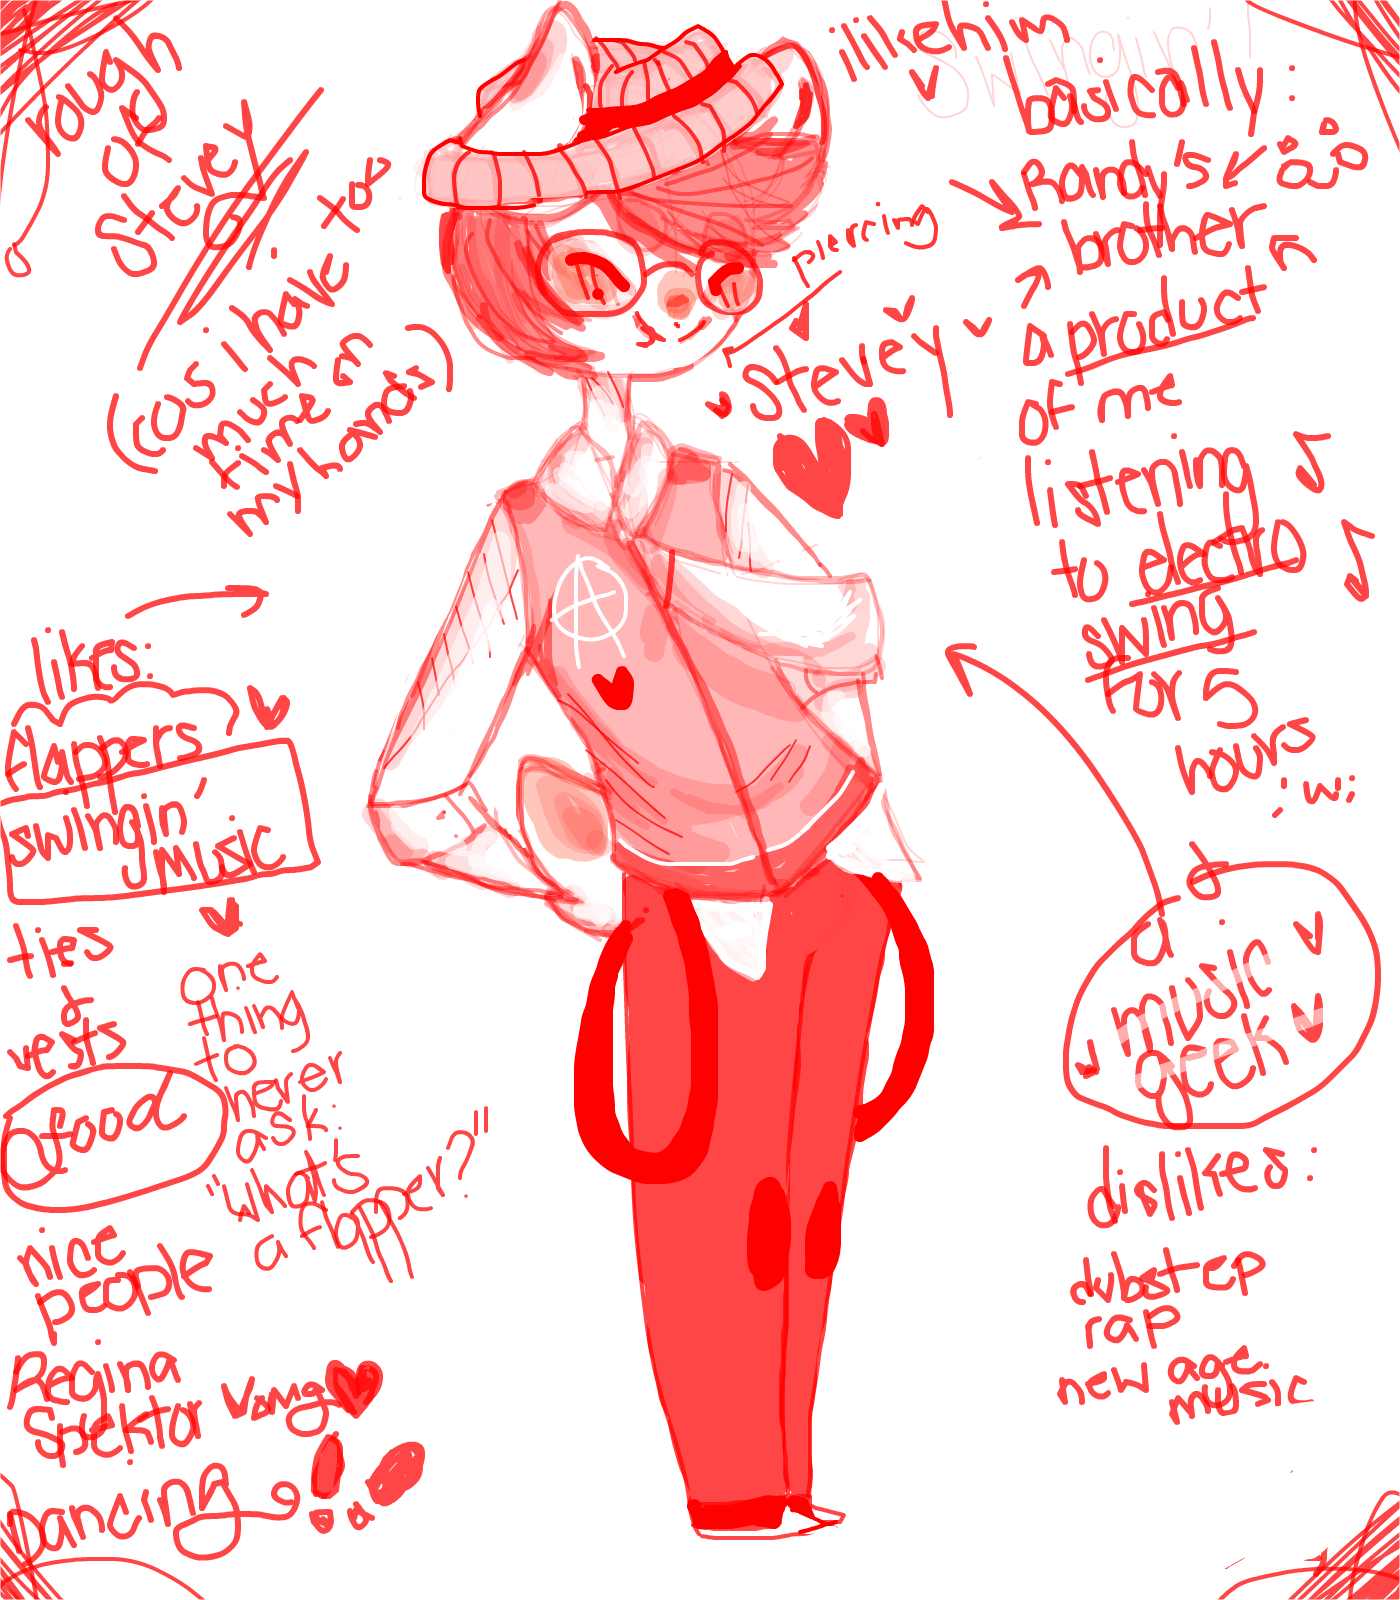 rough
of
Stevey
(cos i have to
much
time on
my hands)
ilikehim
Swingin'!
basically:
Randy's
brother
a product
of me
listening
to electro
swing
for 5
hours
;w;
piercing
Stevey
A
likes:
flappers
swingin'
music
ties
&
vests
food
nice
people
Regina
Spektor
Dancing
omg
one
thing
to
never
ask:
"what's
a flapper?"
a
music
geek
dislikes:
dubstep
rap
new age
music